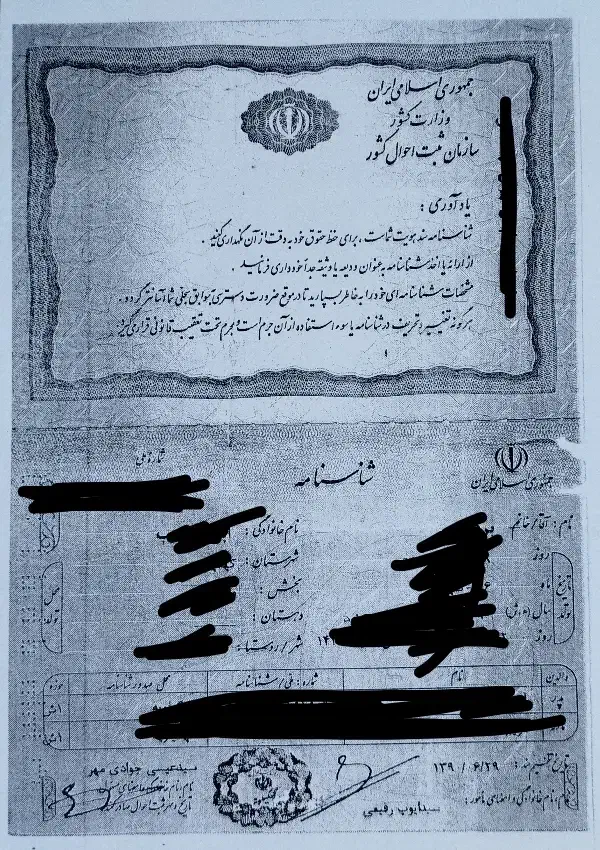 جمهوری اسلامی ایران
وزارت کشور
سازمان ثبت احوال کشور
یادآوری :
شناسنامه سند هویت شماست ، برای حفظ حقوق خود به دقت از آن نگهداری کنید .
از ارائه یا اخذ شناسنامه به عنوان ودیعه یا وثیقه جداً خودداری فرمائید .
مشخصات شناسنامه ای خود را به خاطر بسپارید تا در موقع ضرورت دسترسی به سوابق سجلی شما آسانتر گردد .
هرگونه تغییر و تحریف در شناسنامه یا سوء استفاده از آن جرم است و مجرم تحت تعقیب قانونی قرار می گیرد .
جمهوری اسلامی ایران
شناسنامه
شماره ملی
نام : آقا / خانم
نام خانوادگی :
تاریخ تولد
روز
ماه
سال
روز
محل تولد
شهرستان :
بخش :
دهستان :
شهر / روستا :
والدین
نام
شماره : ملی / شناسنامه
محل صدور شناسنامه
حوزه
پدر
مادر
تاریخ تنظیم سند : ۱۳۹ / ۶/۲۹
نام، نام خانوادگی و امضای مأمور :
سیدایوب رفیعی
سیدعیسی جوادی مهر